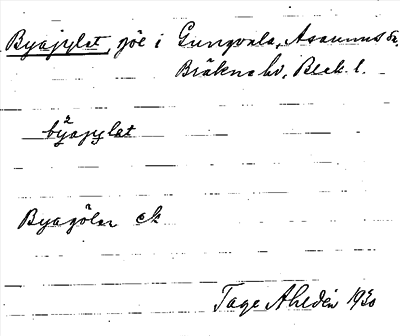 Byagylet, sjö i Gungvala, Asarums sn,
Bräkne hd, Blek. l.
byagylət
Byagölen ek
Tage Ahldén 1930